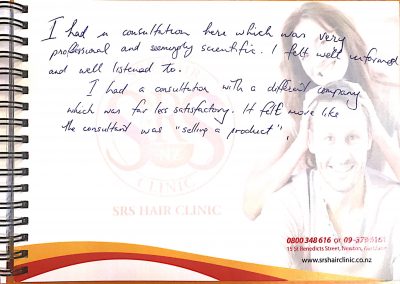 I had a consultation here which was very
professional and seemingly scientific. I felt well informed
and well listened to.
I had a consultation with a different company
which was far less satisfactory. It felt more like
the consultant was "selling a product".
SRS
CLINIC
SRS HAIR CLINIC
0800 348 616 or 09-379
15 St Benedicts Street, Newton, Auckland
www.srshairclinic.co.nz